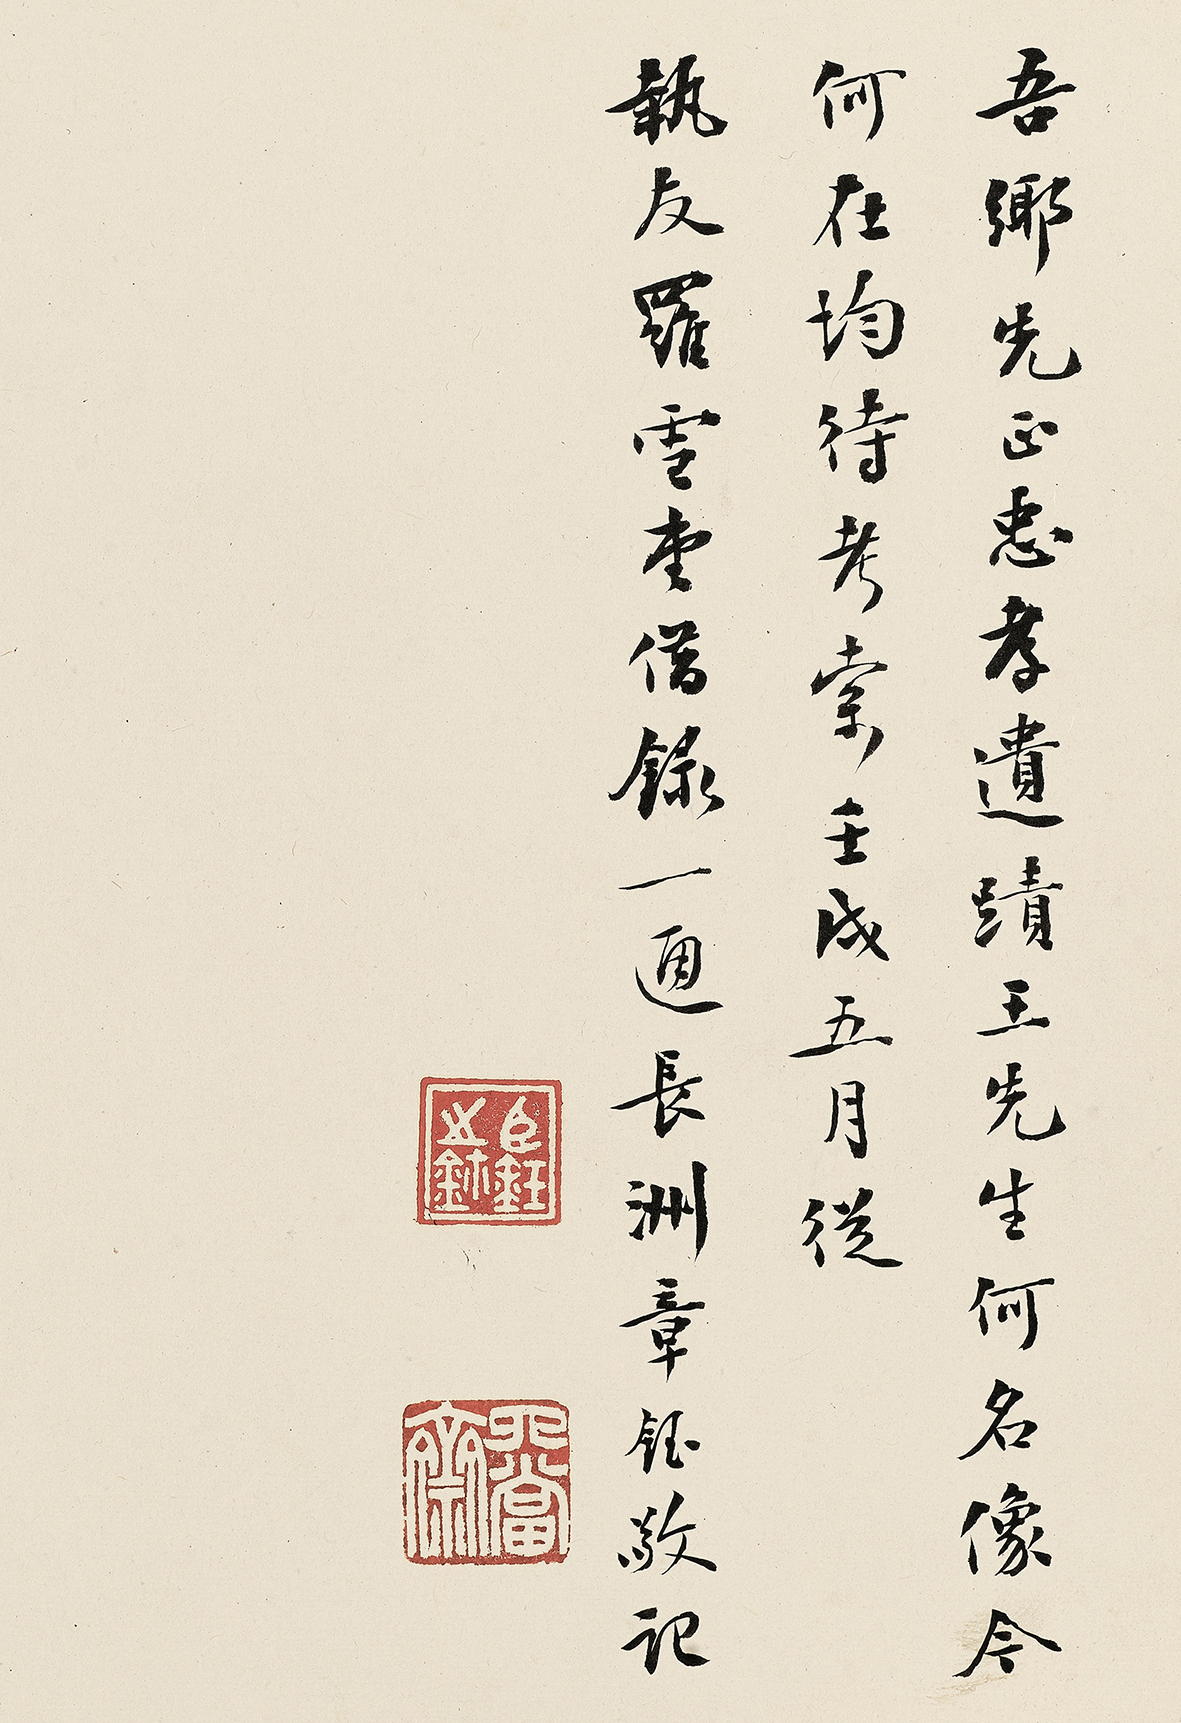 吾鄉先正忠孝遺蹟王先生何名像今
何在均待考索壬戌五月從
執友羅雪堂借錄一通長洲章鈺敬記
臣鈺之鉥
四當齋